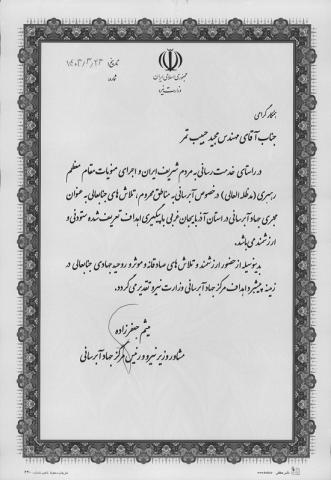 جمهوری اسلامی ایران
وزارت نیرو
تاریخ ۱۴۰۳/۳/۲۳
شماره
همکار گرامی
جناب آقای مهندس مجید حبیب تمر
در راستای خدمت رسانی به مردم شریف ایران و اجرای منویات مقام معظم
رهبری (مدظله العالی) در خصوص آبرسانی به مناطق محروم، تلاش های جنابعالی به عنوان
مجری جهاد آبرسانی در استان آذربایجان غربی با پیگیری اهداف تعریف شده ستودنی و
ارزشمند می باشد.
بدینوسیله از حضور ارزشمند و تلاش های صادقانه و موثر و روحیه جهادی جنابعالی در
زمینه پیشبرد اهداف مرکز جهاد آبرسانی وزارت نیرو تقدیر می گردد.
میثم جعفرزاده
مشاور وزیر نیرو و رئیس مرکز جهاد آبرسانی